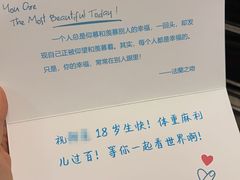 You Are
The Most Beautiful Today!
一个人总是仰慕和羡慕别人的幸福，一回头，却发
现自己正被仰望和羡慕着，其实，每个人都是幸福的。
只是，你的幸福，常常在别人眼里！
祝 18岁生快！体重麻利
儿过百！等你一起看世界啊！